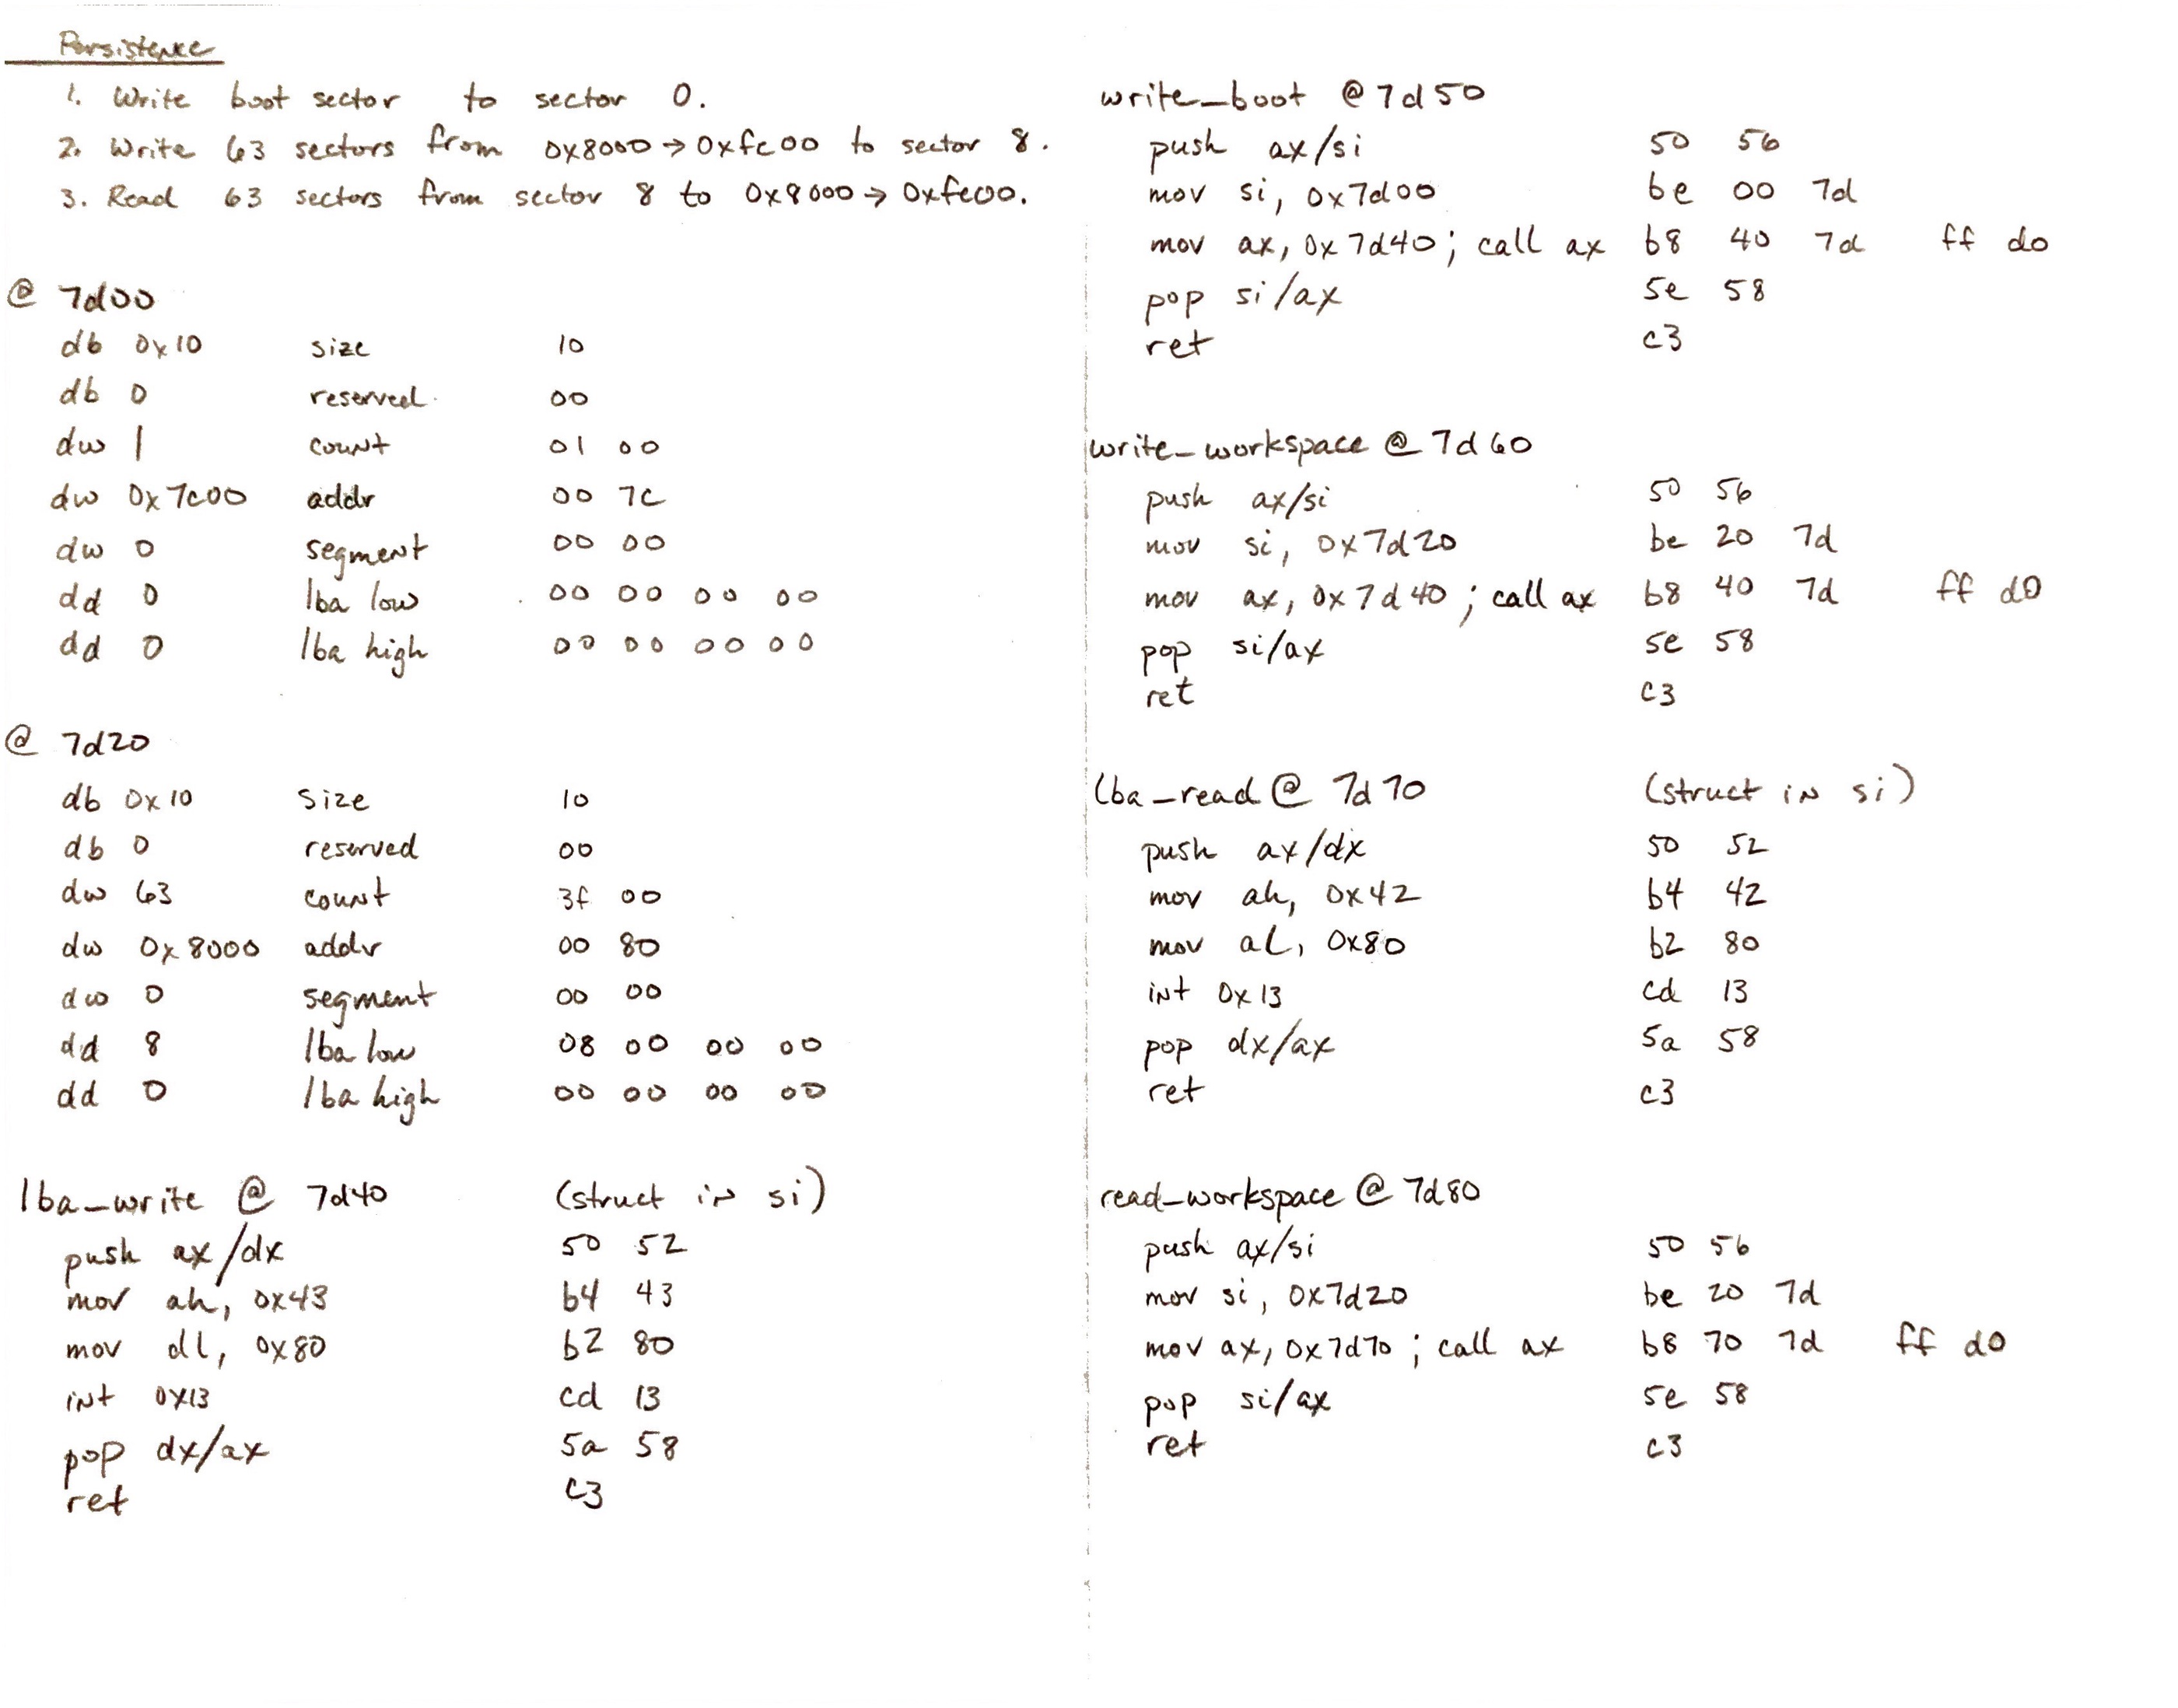 Persistence
1. Write boot sector to sector 0.
2. Write 63 sectors from 0x8000 → 0xfe00 to sector 8.
3. Read 63 sectors from sector 8 to 0x8000 → 0xfe00.
@ 7d00
db 0x10 size 10
db 0 reserved 00
dw 1 count 01 00
dw 0x7c00 addr 00 7c
dw 0 segment 00 00
dd 0 lba low 00 00 00 00
dd 0 lba high 00 00 00 00
@ 7d20
db 0x10 size 10
db 0 reserved 00
dw 63 count 3f 00
dw 0x8000 addr 00 80
dw 0 segment 00 00
dd 8 lba low 08 00 00 00
dd 0 lba high 00 00 00 00
lba_write @ 7d40 (struct in si)
push ax/dx 50 52
mov ah, 0x43 b4 43
mov dl, 0x80 b2 80
int 0x13 cd 13
pop dx/ax 5a 58
ret c3
write_boot @ 7d50
push ax/si 50 56
mov si, 0x7d00 be 00 7d
mov ax, 0x7d40; call ax b8 40 7d ff d0
pop si/ax 5e 58
ret c3
write_workspace @ 7d60
push ax/si 50 56
mov si, 0x7d20 be 20 7d
mov ax, 0x7d40; call ax b8 40 7d ff d0
pop si/ax 5e 58
ret c3
lba_read @ 7d70 (struct in si)
push ax/dx 50 52
mov ah, 0x42 b4 42
mov al, 0x80 b2 80
int 0x13 cd 13
pop dx/ax 5a 58
ret c3
read_workspace @ 7d80
push ax/si 50 56
mov si, 0x7d20 be 20 7d
mov ax, 0x7d70; call ax b8 70 7d ff d0
pop si/ax 5e 58
ret c3